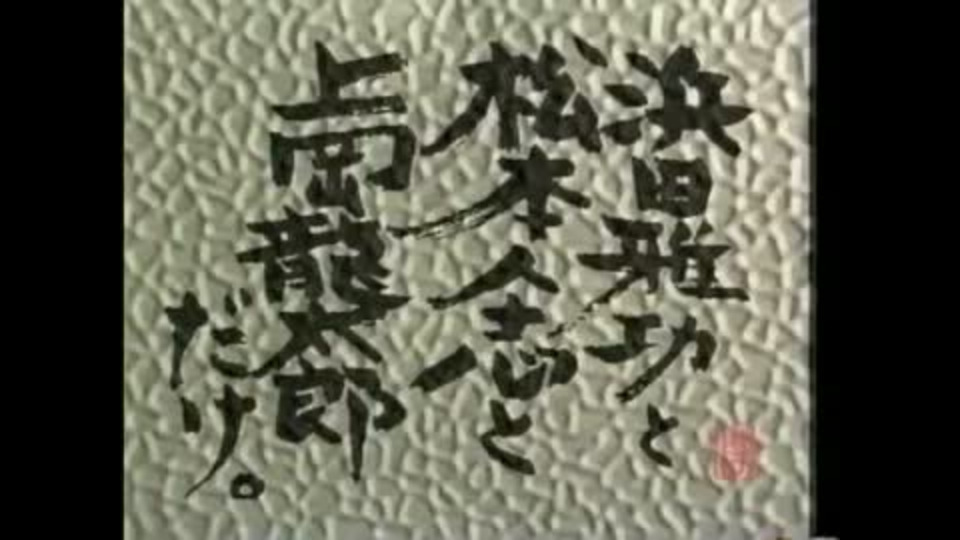 浜田雅功と
松本人志と
上岡龍太郎
だけ。